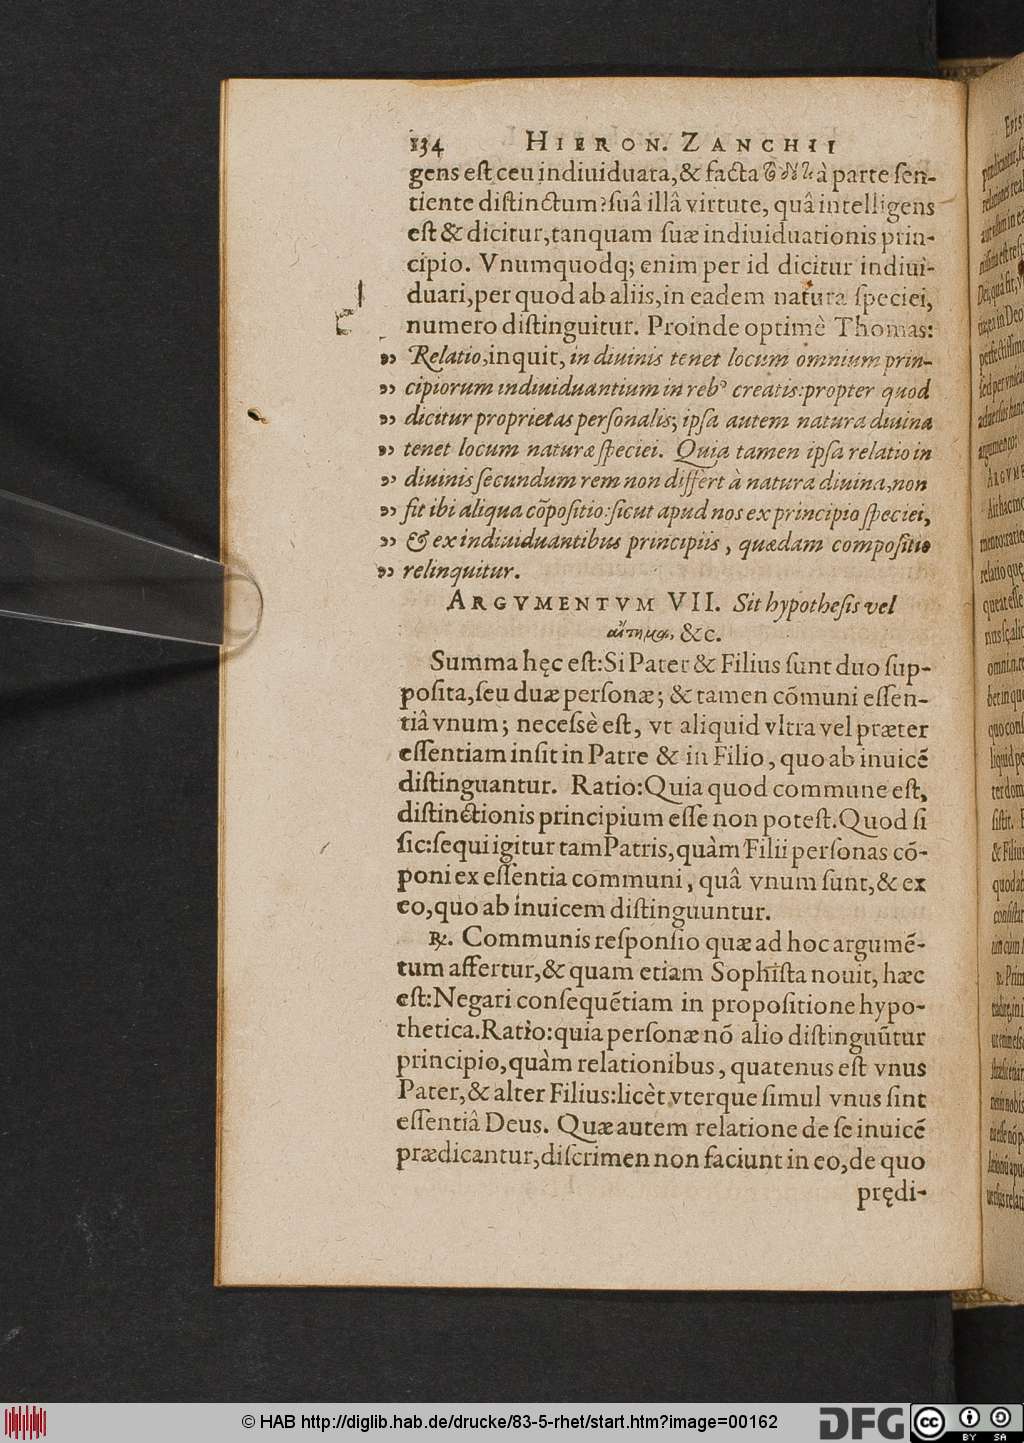 134 HIERON. ZANCHII
gens eſt ceu indiuiduata, & facta à parte ſen-
tiente diſtinctum? ſuâ illâ virtute, quâ intelligens
eſt & dicitur, tanquam ſuæ indiuiduationis prin-
cipio. Vnumquodq; enim per id dicitur indiui-
duari, per quod ab aliis, in eadem natura ſpeciei,
numero diſtinguitur. Proinde optimè Thomas:
„ Relatio, inquit, in diuinis tenet locum omnium prin-
„ cipiorum indiuiduantium in rebꝰ creatis: propter quod
„ dicitur proprietas perſonalis; ipſa autem natura diuina
„ tenet locum naturæ ſpeciei. Quia tamen ipſa relatio in
„ diuinis ſecundum rem non differt à natura diuina, non
„ fit ibi aliqua cõpoſitio: ſicut apud nos ex principio ſpeciei,
„ & ex indiuiduantibus principiis, quædam compoſitio
„ relinquitur.
ARGVMENTVM VII. Sit hypotheſis vel
αἴτημα, &c.
Summa hęc eſt: Si Pater & Filius ſunt duo ſup-
poſita, ſeu duæ perſonæ; & tamen cõmuni eſſen-
tiâ vnum; neceſsè eſt, vt aliquid vltra vel præter
eſſentiam inſit in Patre & in Filio, quo ab inuicẽ
diſtinguantur. Ratio: Quia quod commune eſt,
diſtinctionis principium eſſe non poteſt. Quod ſi
ſic: ſequi igitur tam Patris, quàm Filii perſonas cõ-
poni ex eſſentia communi, quâ vnum ſunt, & ex
eo, quo ab inuicem diſtinguuntur.
℞. Communis reſponſio quæ ad hoc argumẽ-
tum affertur, & quam etiam Sophiſta nouit, hæc
eſt: Negari conſequẽtiam in propoſitione hypo-
thetica. Ratio: quia perſonæ nõ alio diſtinguũtur
principio, quàm relationibus, quatenus eſt vnus
Pater, & alter Filius: licèt vterque ſimul vnus ſint
eſſentiâ Deus. Quæ autem relatione de ſe inuicẽ
prædicantur, diſcrimen non faciunt in eo, de quo
prędi-
© HAB http://diglib.hab.de/drucke/83-5-rhet/start.htm?image=00162
DFG
cc BY SA